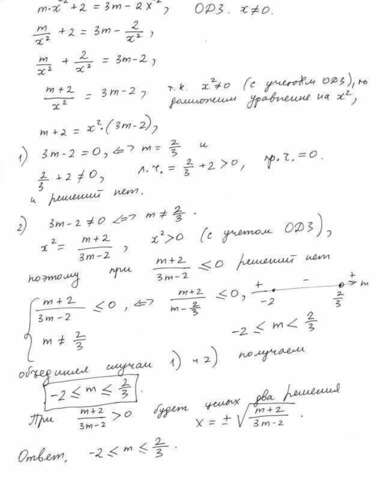 m·x⁻² + 2 = 3m - 2x⁻², ОДЗ. x≠0.
m/x² + 2 = 3m - 2/x²,
m/x² + 2/x² = 3m-2,
(m+2)/x² = 3m-2, т.к. x²≠0 (с учетом ОДЗ), то
домножим уравнение на x²,
m+2 = x²·(3m-2),
1) 3m-2=0, <=> m=2/3 и
2/3 + 2 ≠ 0, л.ч. = 2/3 + 2 > 0, пр.ч. = 0.
и решений нет.
2) 3m-2≠0 <=> m≠2/3.
x² = (m+2)/(3m-2), x²>0 (с учетом ОДЗ),
поэтому при (m+2)/(3m-2) ≤ 0 решений нет
{ (m+2)/(3m-2) ≤ 0, <=> (m+2)/(m-2/3) ≤ 0, + -2 - 2/3 + m
m≠2/3 -2 ≤ m < 2/3
объединяя случаи 1) и 2) получаем
-2 ≤ m ≤ 2/3.
При (m+2)/(3m-2) > 0 будет целых два решения
x = ±√((m+2)/(3m-2)).
Ответ. -2 ≤ m ≤ 2/3.